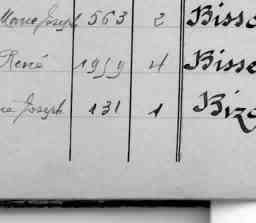 Marie Joseph 563 2 Biss
René 1959 4 Bisse
Joseph 131 1 Biz